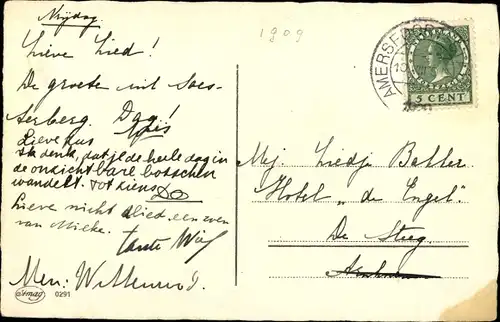 Vrijdag
1909
Lieve Lied!
De groete uit Soes-
terberg. Dag!
Lieve Zus
Ik denk, dat je de heele dag in
de onzichtbare botschen
wandelt. Tot ziens Do
Lieve nicht Lied. een zoen
van Mieke. tante Wies
Mevr. Wittenrood.
0291
AMERSFOORT
5 CENT
Mej. Liedje Bakker
Hotel „de Engel"
De Steeg
Arnhem